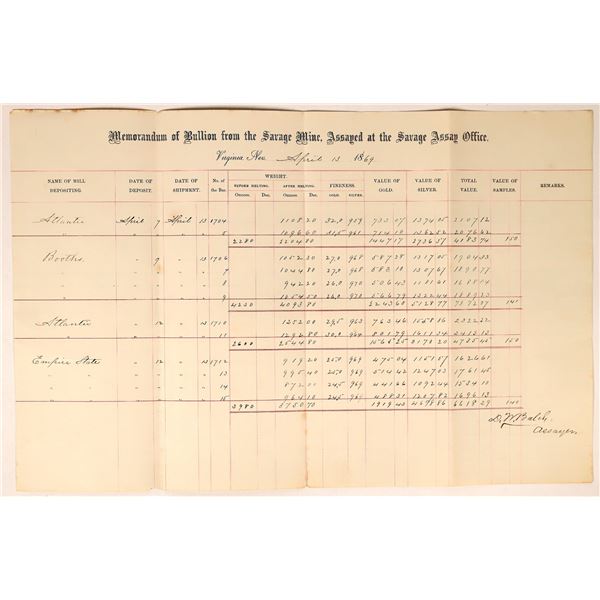 Memorandum of Bullion from the Savage Mine, Assayed at the Savage Assay Office.
Virginia, Nev. April 13 1869
NAME OF MILL DEPOSITING. DATE OF DEPOSIT. DATE OF SHIPMENT. No. of the Bar. WEIGHT. BEFORE MELTING. Ounces. Dec. AFTER MELTING. Ounces. Dec. FINENESS. GOLD. SILVER. VALUE OF GOLD. VALUE OF SILVER. TOTAL VALUE. VALUE OF SAMPLES. REMARKS.
Atlantic April 7 April 13 1704 1108 20 32,0 959 733 07 1374 05 2107 12
5 1096 60 31,5 961 714 10 1362 52 2076 62
2280 2204 80 1447 17 2736 57 4183 74 150
Booths " 9 " 13 1706 1052 20 27,0 968 587 28 1317 05 1904 33
7 1044 80 27,0 968 583 18 1307 67 1890 77
8 942 20 26,0 970 506 43 1181 61 1688 04
9 1054 50 26,0 970 566 79 1322 44 1889 23
4220 4093 80 2243 60 5128 77 7372 37 140
Atlantic " 12 " 13 1710 1252 00 29,5 963 763 46 1558 86 2322 32
11 1292 80 30,0 964 801 79 1611 34 2413 13
2600 2544 80 1565 25 3170 20 4735 45 150
Empire State " 12 " 13 1712 919 20 25,0 969 475 04 1151 57 1626 61
13 995 40 25,0 969 514 42 1247 03 1761 45
14 872 00 24,5 969 441 66 1092 44 1534 10
15 964 10 24,5 969 488 31 1207 82 1696 13
3980 3750 70 1919 43 4698 86 6618 29 140
D. W. Balch.
Assayer